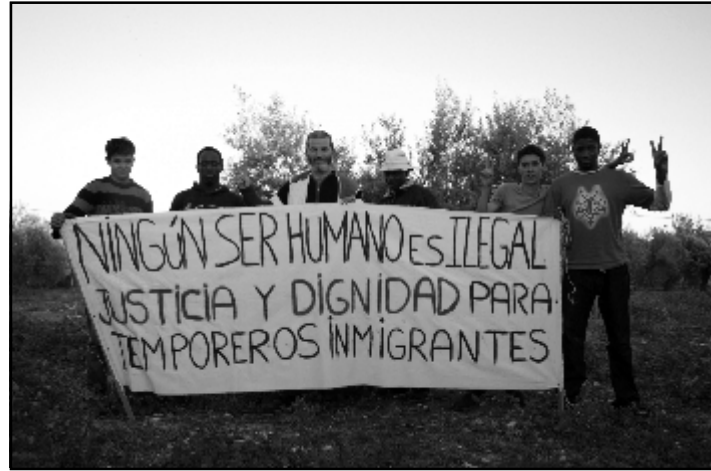 NINGÚN SER HUMANO ES ILEGAL
JUSTICIA Y DIGNIDAD PARA
TEMPOREROS INMIGRANTES